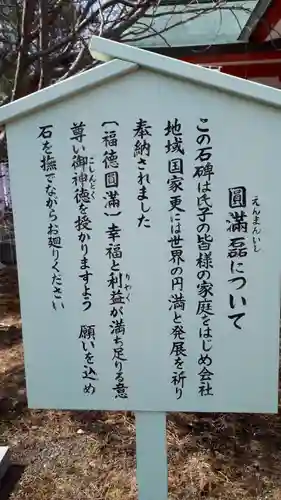 圓滿磊について
えんまんいし
この石碑は氏子の皆様の家庭をはじめ会社
地域国家更には世界の円満と発展を祈り
奉納されました
〔福徳圓滿〕幸福と利益が満ち足りる意
りやく
尊い御神徳を授かりますよう 願いを込め
ごしんとく
石を撫でながらお廻りください